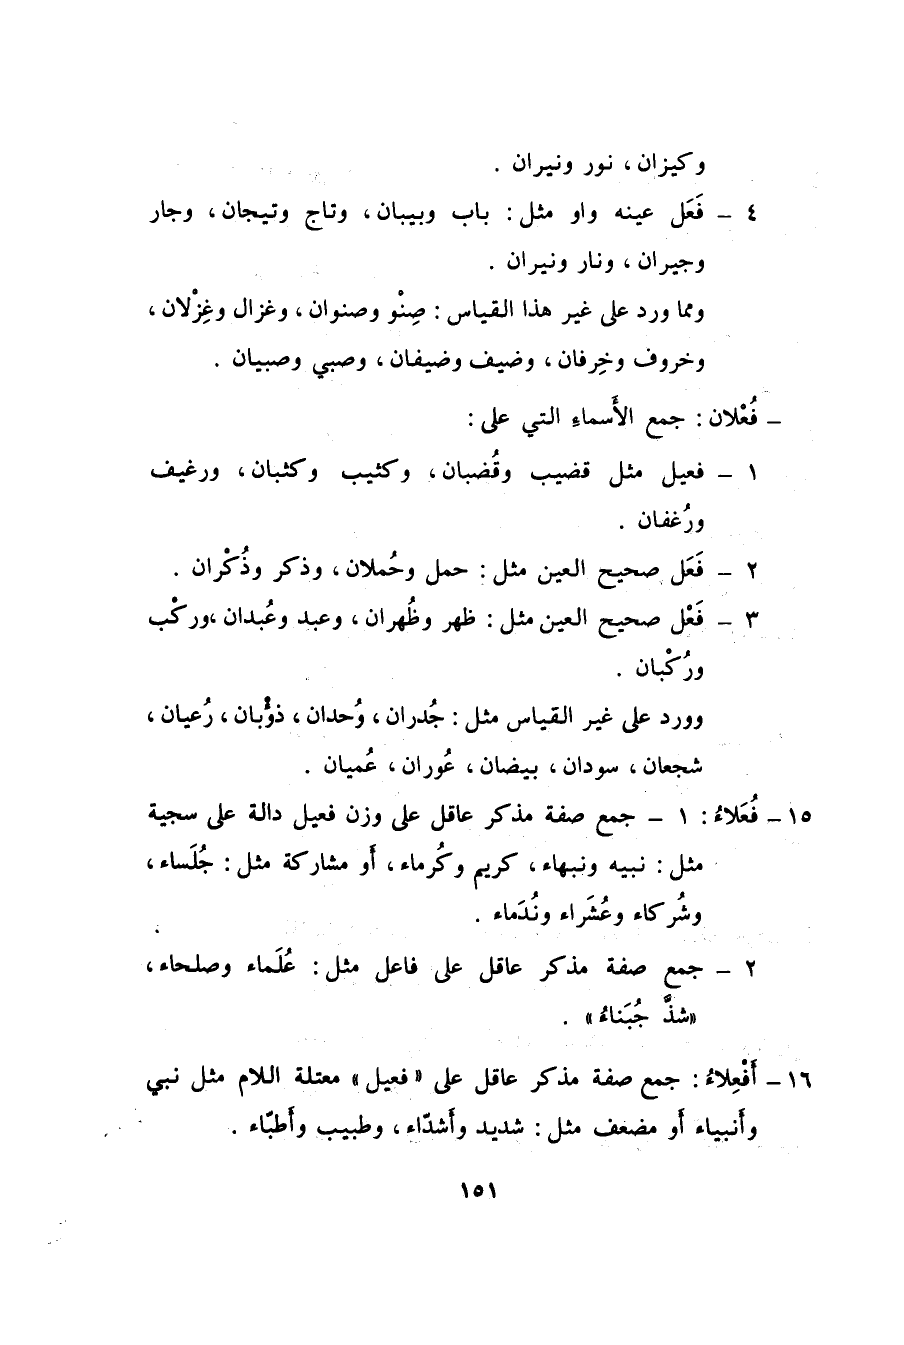 وكيزان ، نور ونيران .
٤ ــ فَعَل عينه واو مثل : باب وبيبان ، وتاج وتيجان ، وجار
وجيران ، ونار ونيران .
ومما ورد على غير هذا القياس : صِنْو وصنوان ، وغزال وغِزْلان ،
وخروف وخِرفان ، وضيف وضيفان ، وصبي وصبيان .
ــ فُعْلان : جمع الأَسماءِ التي على :
١ ــ فعيل مثل قضيب وقُضبان ، وكثيب وكثبان ، ورغيف
ورُغفان .
٢ ــ فَعَل صحيح العين مثل : حمل وحُملان ، وذكر وذُكْران .
٣ ــ فَعْل صحيح العين مثل : ظهر وظُهران ، وعبد وعُبدان ،وركْب
ورُكْبان .
وورد على غير القياس مثل : جُدران ، وُحدان ، ذؤْبان ، رُعيان ،
شجعان ، سودان ، بيضان ، عُوران ، عُميان .
١٥ ــ فُعَلاءُ : ١ ــ جمع صفة مذكر عاقل على وزن فعيل دالة على سجية
مثل : نبيه ونبهاء ، كريم وكُرماء ، أَو مشاركة مثل : جُلَساء ،
وشُركاء وعُشَراء ونُدَماء .
٢ ــ جمع صفة مذكر عاقل على فاعل مثل : عُلَماء وصلحاء ،
«شذَّ جُبَناءُ» .
١٦ ــ أَفْعِلاءُ : جمع صفة مذكر عاقل على «فعيل» معتلة اللام مثل نبي
وأَنبياء أَو مضعف مثل : شديد وأَشدّاء ، وطبيب وأَطبّاء .
١٥١